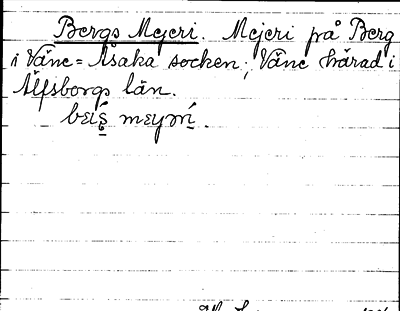 Bergs Mejeri. Mejeri på Berg
i Väne-Åsaka socken, Väne härad i
Älfsborgs län.